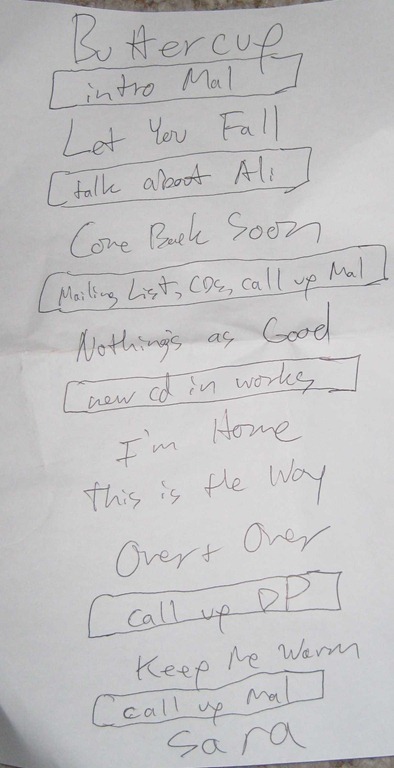 Buttercup
intro Mal
Let You Fall
talk about Ali
Come Back Soon
Mailing List, CDs, call up Mal
Nothing's as Good
new cd in works
I'm Home
this is the Way
Over + Over
call up DP
Keep Me Warm
call up Mal
Sara